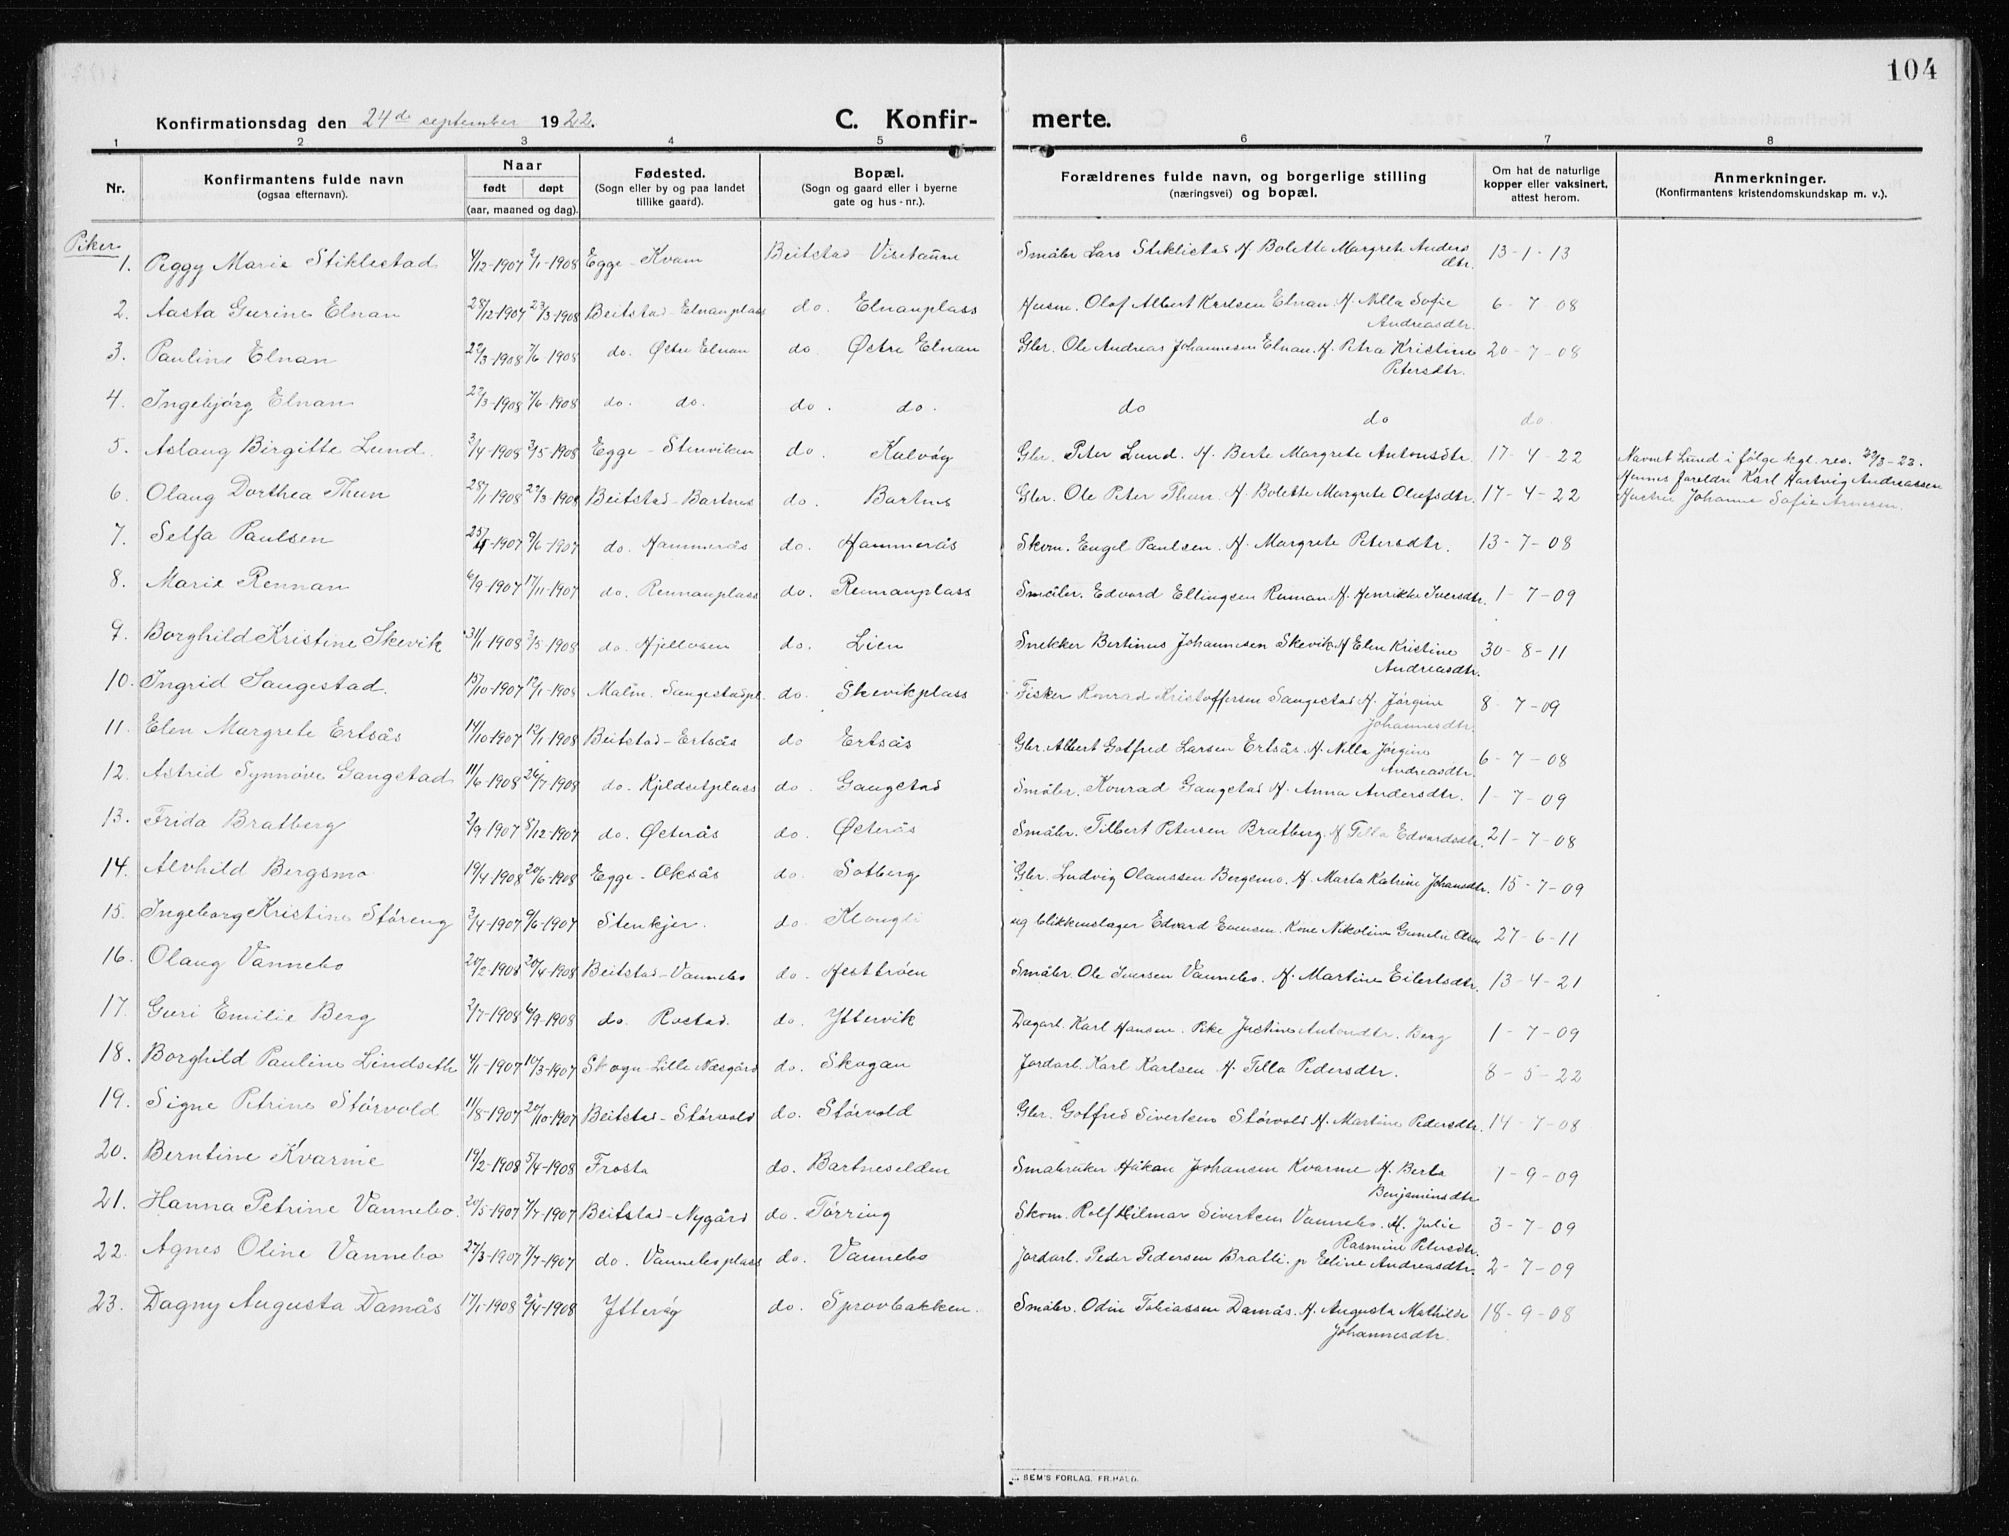 104
Konfirmationsdag den 24de september 1922.
C. Konfirmerte.
1 2 3 4 5 6 7 8
Nr.
Konfirmantens fulde navn
(ogsaa efternavn).
Naar
født døpt
(aar, maaned og dag).
Fødested.
(Sogn eller by og paa landet
tillike gaard).
Bopæl.
(Sogn og gaard eller i byerne
gate og hus-nr.).
Forældrenes fulde navn, og borgerlige stilling
(næringsvei) og bopæl.
Om hat de naturlige
kopper eller vaksinert,
attest herom.
Anmerkninger.
(Konfirmantens kristendomskundskap m. v.).
Piker
1. Peggy Marie Stiklestad 4/12-1907 2/1-1908 Egge - Kvam Beitstad Smålbr Lars Stiklestad H Bolette Margrete Anders
dtr. 13-1-13
2. Aasta Gurine Elnan 28/12-1907 23/3-1908 Beitstad-Elnanplass do. Elnanplass Husm. Olof Albert Karlsen Elnan H. Nella Sofie
Andreasdtr. 6-7-08
3. Pauline Elnan 22/3-1908 7/6-1908 do. Østre Elnan do Østre Elnan Gbr. Ole Andreas Johannesen Elnan. H. Petra Kristine
Petersdtr. 20-7-08
4. Ingebjørg Elnan 22/3-1908 7/6-1908 do. do. do. do. do do do.
5. Aslaug Birgitte Lund. 3/4-1908 3/5-1908 Egge - Stenviken do. Kalvøg Gbr. Peter Lund. H. Berte Margrete Antonsdtr. 17-4-22 Navnet Lund i følge kgl. res. 23-22.
6. Olaug Dorthea Thun 28/1-1908 22/3-1908 Beitstad-Bartnes do. Bartnes Gbr. Ole Peter Thun. H. Bolette Margrete Olufsdtr. 17-4-22 Hennes foreldre Karl Hartvig Andreassen
Hustru Johanne Sofie Arnesen.
7. Selfa Paulsen 25/4-1907 9/6-1907 do. Hammerås do. Hammerås Skom. Engel Paulsen. H. Margrete Petersdtr. 13-7-08
8. Marie Rennan 6/9-1907 17/11-1907 do. Rennanplass do. Rennanplass Smålbr. Edvard Ellingsen Rennan H. Henrikke Iversdtr. 1-7-09
9. Borghild Kristine Skevik 31/1-1908 3/5-1908 do. Hjellosen do. Lien Snekker Bertinus Johannesen Skevik H Elen Kristine
Andreasdtr. 30-8-11
10. Ingrid Saugestad. 15/10-1907 12/1-1908 Malm. Saugestadpl. do. Skevikplass Fisker Konrad Kristoffersen Saugestad H. Jørgine
Johannesdtr. 8-7-09
11. Elen Margrete Ertsås 14/10-1907 12/1-1908 Beitstad-Ertsås do Ertsås Gbr. Albert Gotfred Larsen Ertsås. H. Nella Jørgine
Andreasdtr. 6-7-08
12. Astrid Synnøve Gangstad 11/6-1908 26/7-1908 do. Kjeldsetplass do. Gangstad Smålbr. Konrad Gangstad H. Anna Andersdtr. 1-7-09
13. Frida Bratberg 2/9-1907 8/12-1907 do. Østerås do. Østerås Smålbr. Tilbert Petersen Bratberg. H Tella Edvardsdtr. 21-7-08
14. Alvhild Bergsmo 19/4-1908 20/6-1908 Egge - Oksås do. Solberg Gbr. Ludvig Olaussen Bergsmo. H. Marta Katrine Johansdtr. 15-7-09
15. Ingeborg Kristine Støreng 3/4-1907 9/6-1907 Stenkjer. do. Klongli ug blikkenslager Edvard Evensen. Kone Nikoline Gunelie Olsen 27-6-11
16. Olaug Vannebo 20/2-1908 20/4-1908 Beitstad-Vannebo do. Hesttrøen Smålbr. Ole Iversen Vannebo. H. Martine Eilertsdtr. 13-4-21
17. Guri Emilie Berg 2/7-1908 6/9-1908 do. Rostad. do. Yttervik Dagarb. Karl Hansen. Pike Justine Antondtr. Berg 1-7-09
18. Borghild Pauline Lindseth 4/1-1907 10/3-1907 Skogn-Lille Næsgård do. Skogan Jordarb. Karl Karlsen H. Tella Pedersdtr. 8-5-22
19. Signe Petrine Størvold 11/8-1907 20/10-1907 Beitstad-Størvold do. Størvold Gbr. Gotfred Sivertsen Størvold H. Martine Pedersdtr. 14-7-08
20. Berntine Kvarme 19/2-1908 5/4-1908 Frosta do. Bartneselden Småbruker Håkan Johansen Kvarme H. Berta
Benjaminsdtr 1-9-09
21. Hanna Petrine Vannebo. 20/5-1907 7/7-1907 Beitstad-Nygård do. Tørring Skom. Rolf Hilmar Sivertsen Vannebo. H. Julie
Rasmine Petersdtr. 3-7-09
22. Agnes Oline Vannebo 27/3-1907 7/7-1907 do. Vanneboplass do. Vannebo Jordarb. Peder Pedersen Bratli. p Eline Andreasdtr. 2-7-09
23. Dagny Augusta Damås 17/1-1908 2/4-1908 Ytterøy do. Sprovbakken. Smålbr. Odin Tobiassen Damås. H. Augusta Mathilde
Johannesdtr. 18-9-08
SEM'S FORLAG, FR.HALD.